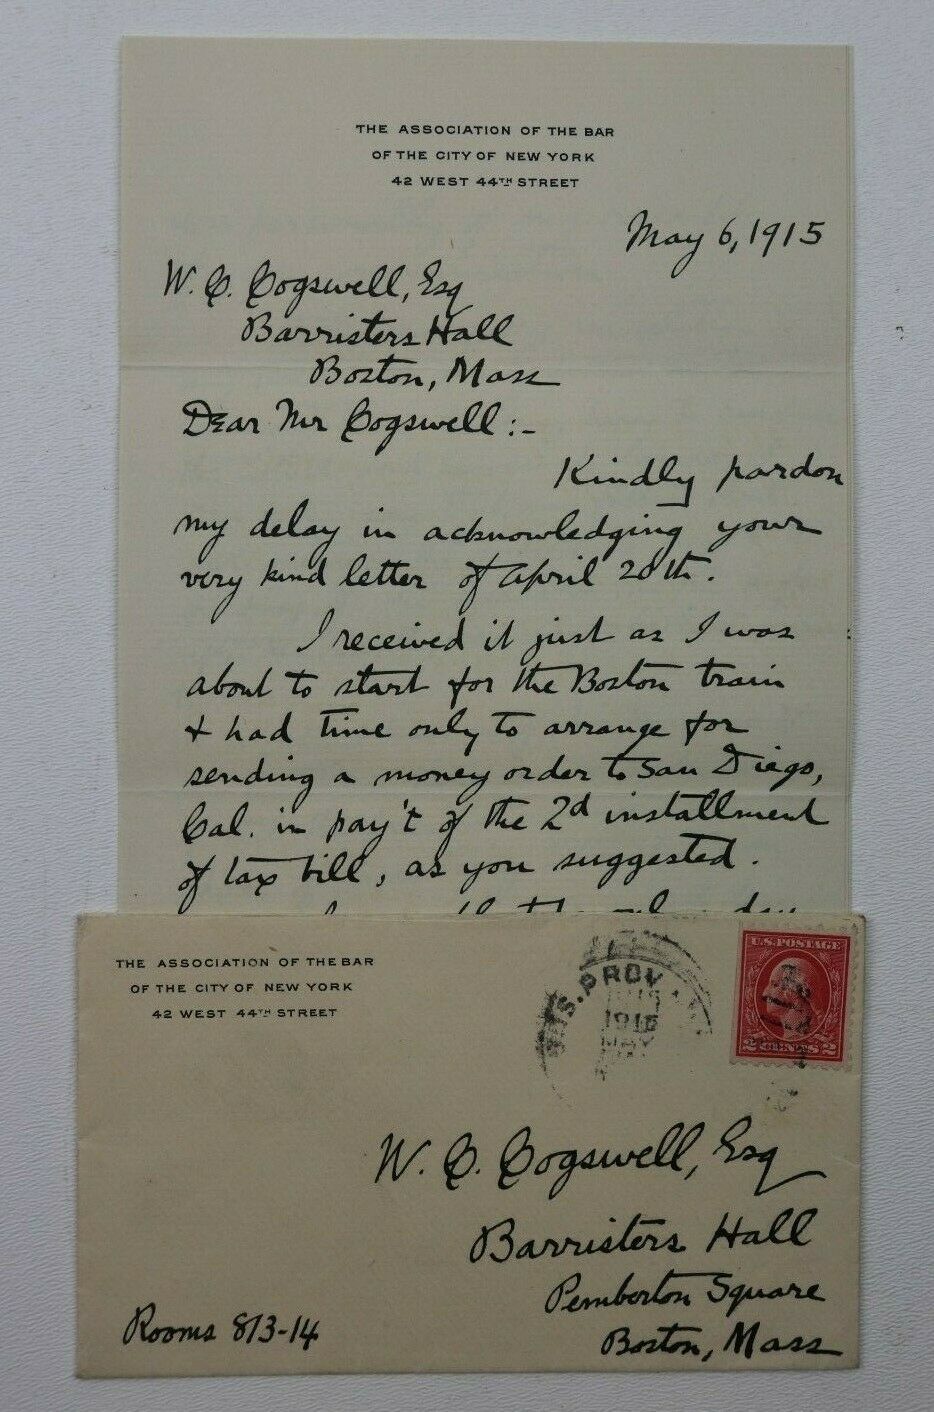 THE ASSOCIATION OF THE BAR
OF THE CITY OF NEW YORK
42 WEST 44TH STREET
May 6, 1915
W. C. Cogswell, Esq
Barristers Hall
Boston, Mass
Dear Mr Cogswell:-
Kindly pardon
my delay in acknowledging your
very kind letter of April 20th.
I received it just as I was
about to start for the Boston train
& had time only to arrange for
sending a money order to San Diego,
Cal. in pay't of the 2d installment
of tax bill, as you suggested.
THE ASSOCIATION OF THE BAR
OF THE CITY OF NEW YORK
42 WEST 44TH STREET
PROV
1915
MAY
U.S. POSTAGE
2 CENTS 2
W. C. Cogswell, Esq
Barristers Hall
Pemberton Square
Boston, Mass
Rooms 813-14